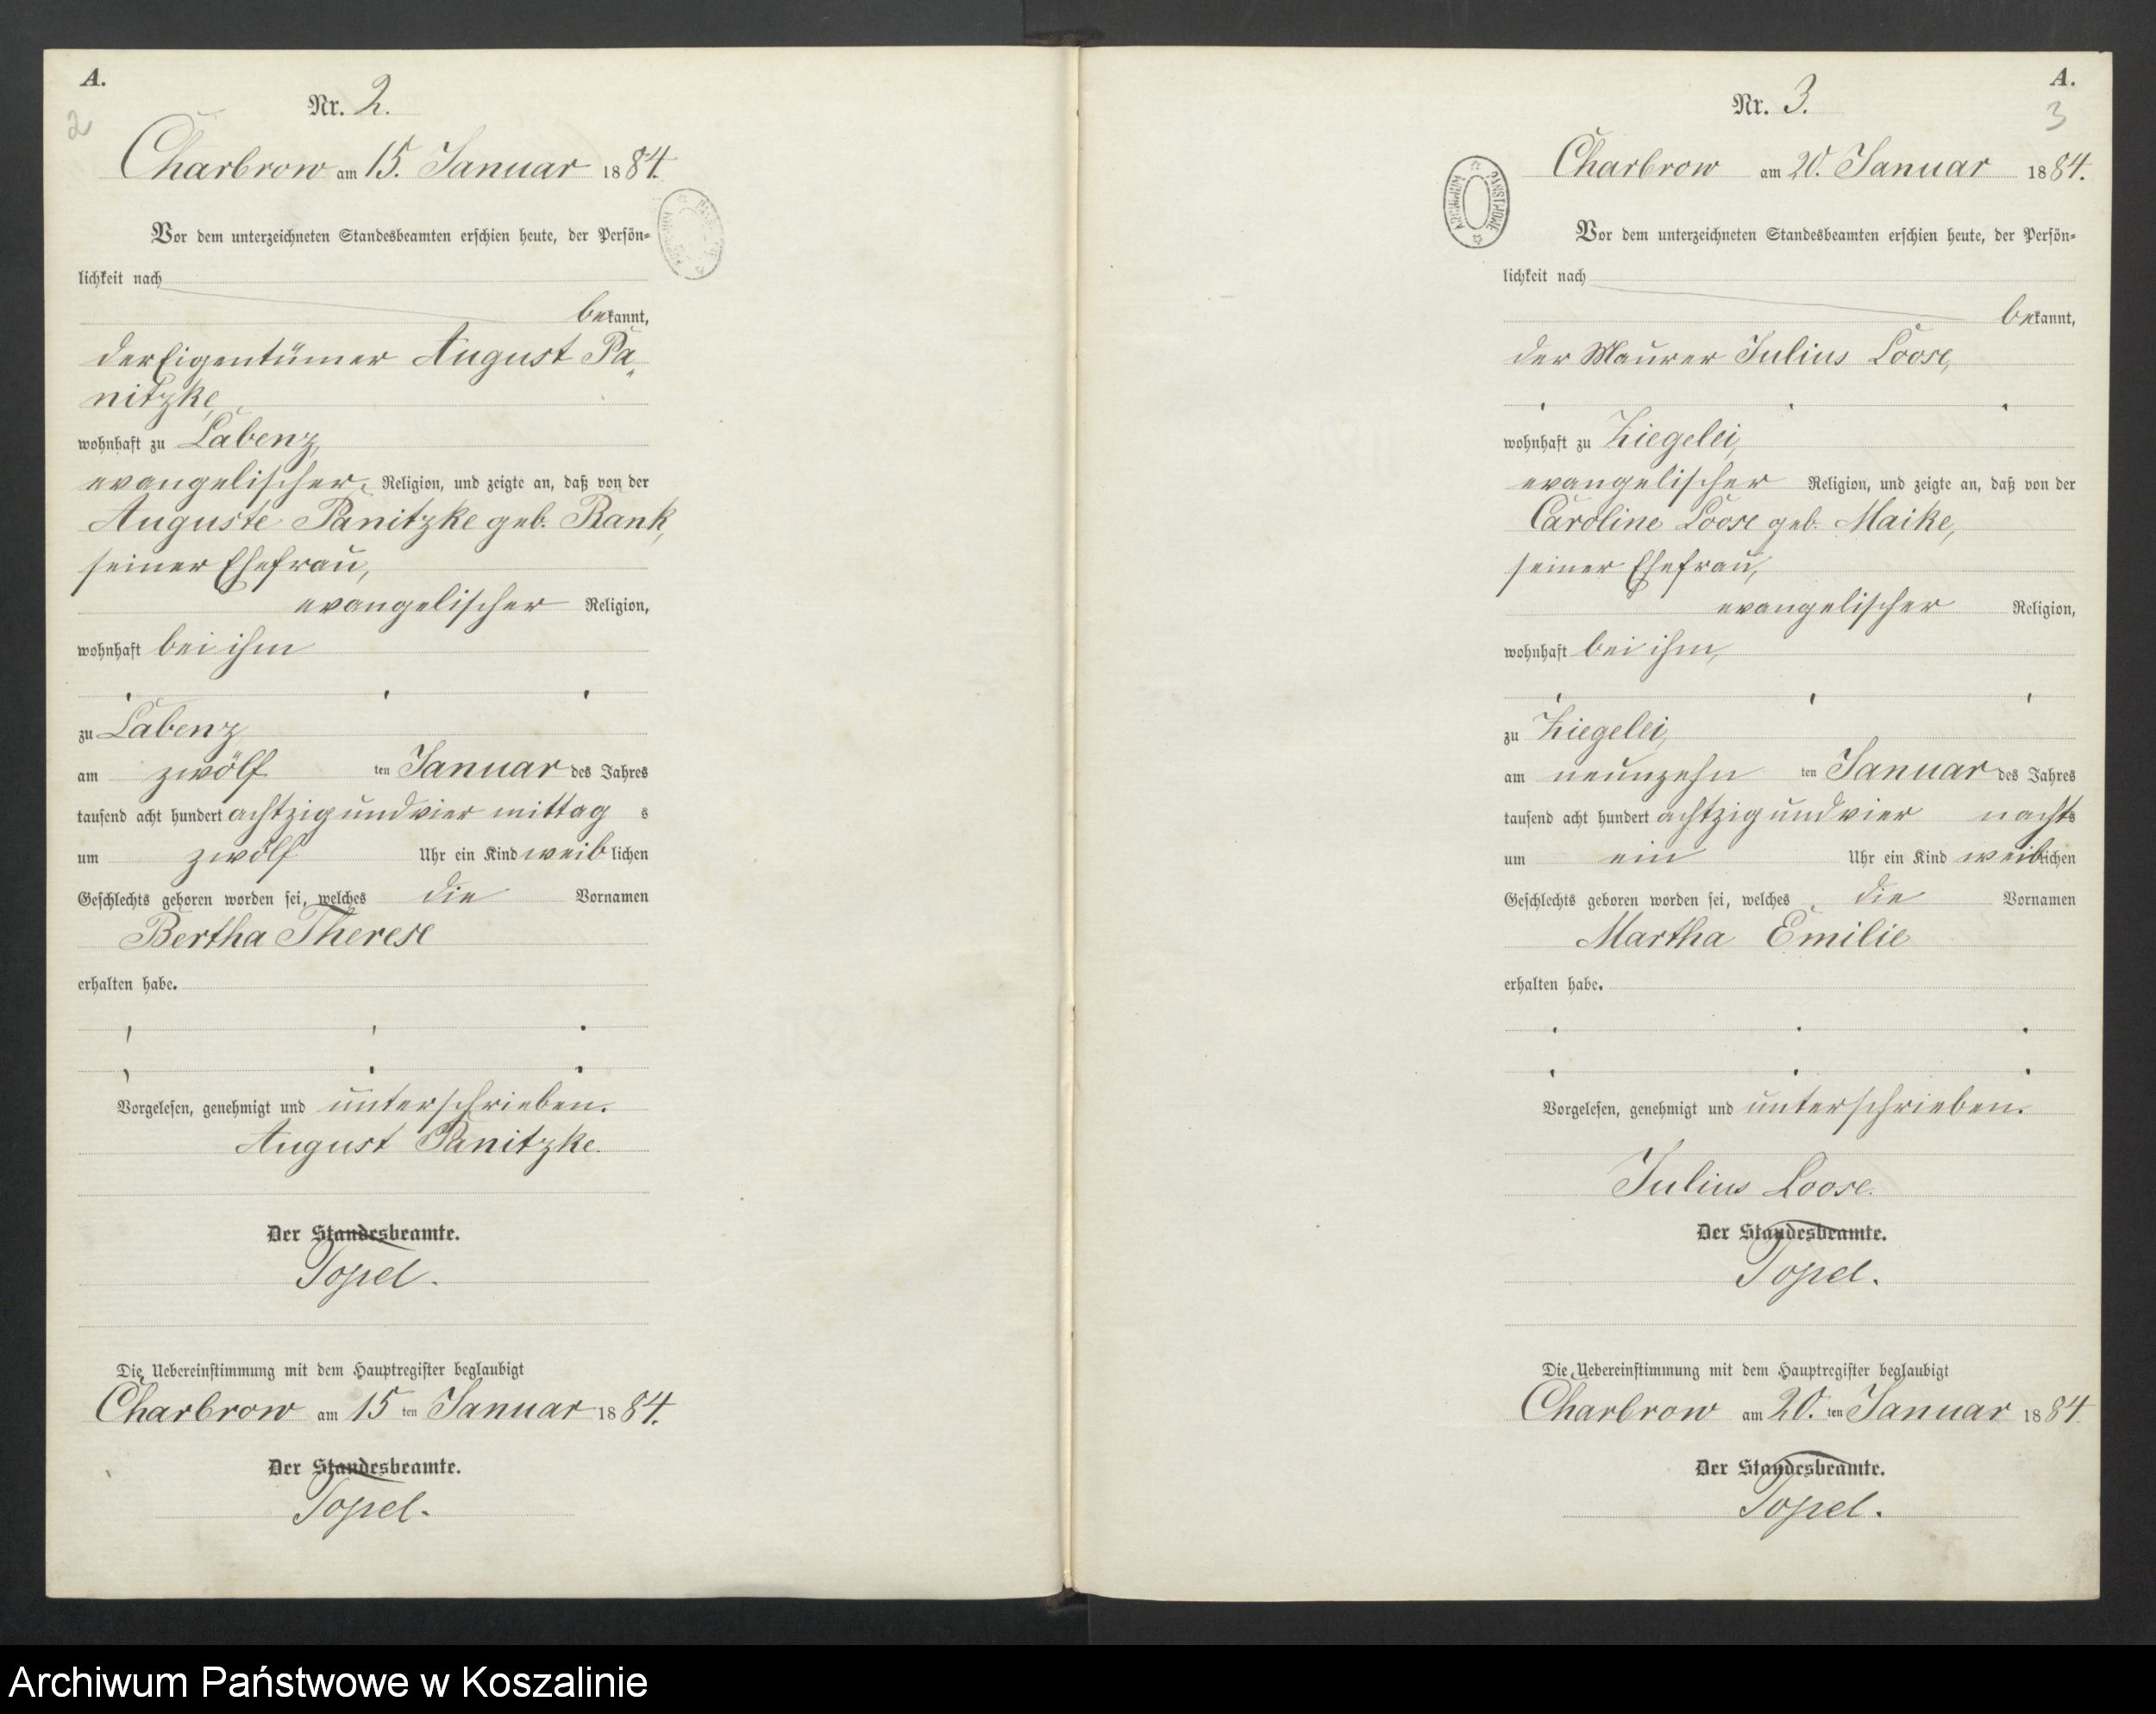 A.
2
Nr. 2.
Charbrow am 15. Januar 1884.
Vor dem unterzeichneten Standesbeamten erschien heute, der Persön-
lichkeit nach
bekannt,
der Eigentümer August Pa-
nitzke,
wohnhaft zu Labenz,
evangelischer Religion, und zeigte an, daß von der
Auguste Panitzke geb. Rank,
seiner Ehefrau,
evangelischer Religion,
wohnhaft bei ihm
zu Labenz
am zwölf ten Januar des Jahres
tausend acht hundert achtzig und vier mittag s
um zwölf Uhr ein Kind weiblichen
Geschlechts geboren worden sei, welches die Vornamen
Bertha Therese
erhalten habe.
Vorgelesen, genehmigt und unterschrieben.
August Panitzke.
Der Standesbeamte.
Topel.
Die Uebereinstimmung mit dem Hauptregister beglaubigt
Charbrow am 15 ten Januar 1884.
Der Standesbeamte.
Topel.
A.
3
Nr. 3.
ARCHIWUM PAŃSTWOWE
Charbrow am 20. Januar 1884.
Vor dem unterzeichneten Standesbeamten erschien heute, der Persön-
lichkeit nach
bekannt,
der Maurer Julius Loose,
wohnhaft zu Ziegelei,
evangelischer Religion, und zeigte an, daß von der
Caroline Loose geb. Maike,
seiner Ehefrau,
evangelischer Religion,
wohnhaft bei ihm,
zu Ziegelei,
am neunzehn ten Januar des Jahres
tausend acht hundert achtzig und vier nachts
um ein Uhr ein Kind weiblichen
Geschlechts geboren worden sei, welches die Vornamen
Martha Emilie
erhalten habe.
Vorgelesen, genehmigt und unterschrieben.
Julius Loose.
Der Standesbeamte.
Topel.
Die Uebereinstimmung mit dem Hauptregister beglaubigt
Charbrow am 20. ten Januar 1884
Der Standesbeamte.
Topel.
Archiwum Państwowe w Koszalinie